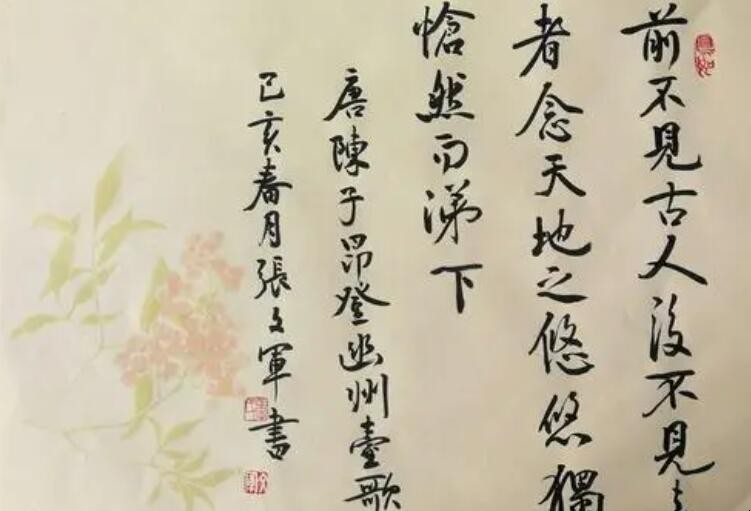 前不見古人後不見
者念天地之悠悠獨
愴然而涕下
唐陳子昂登幽州臺歌
己亥春月張文軍書